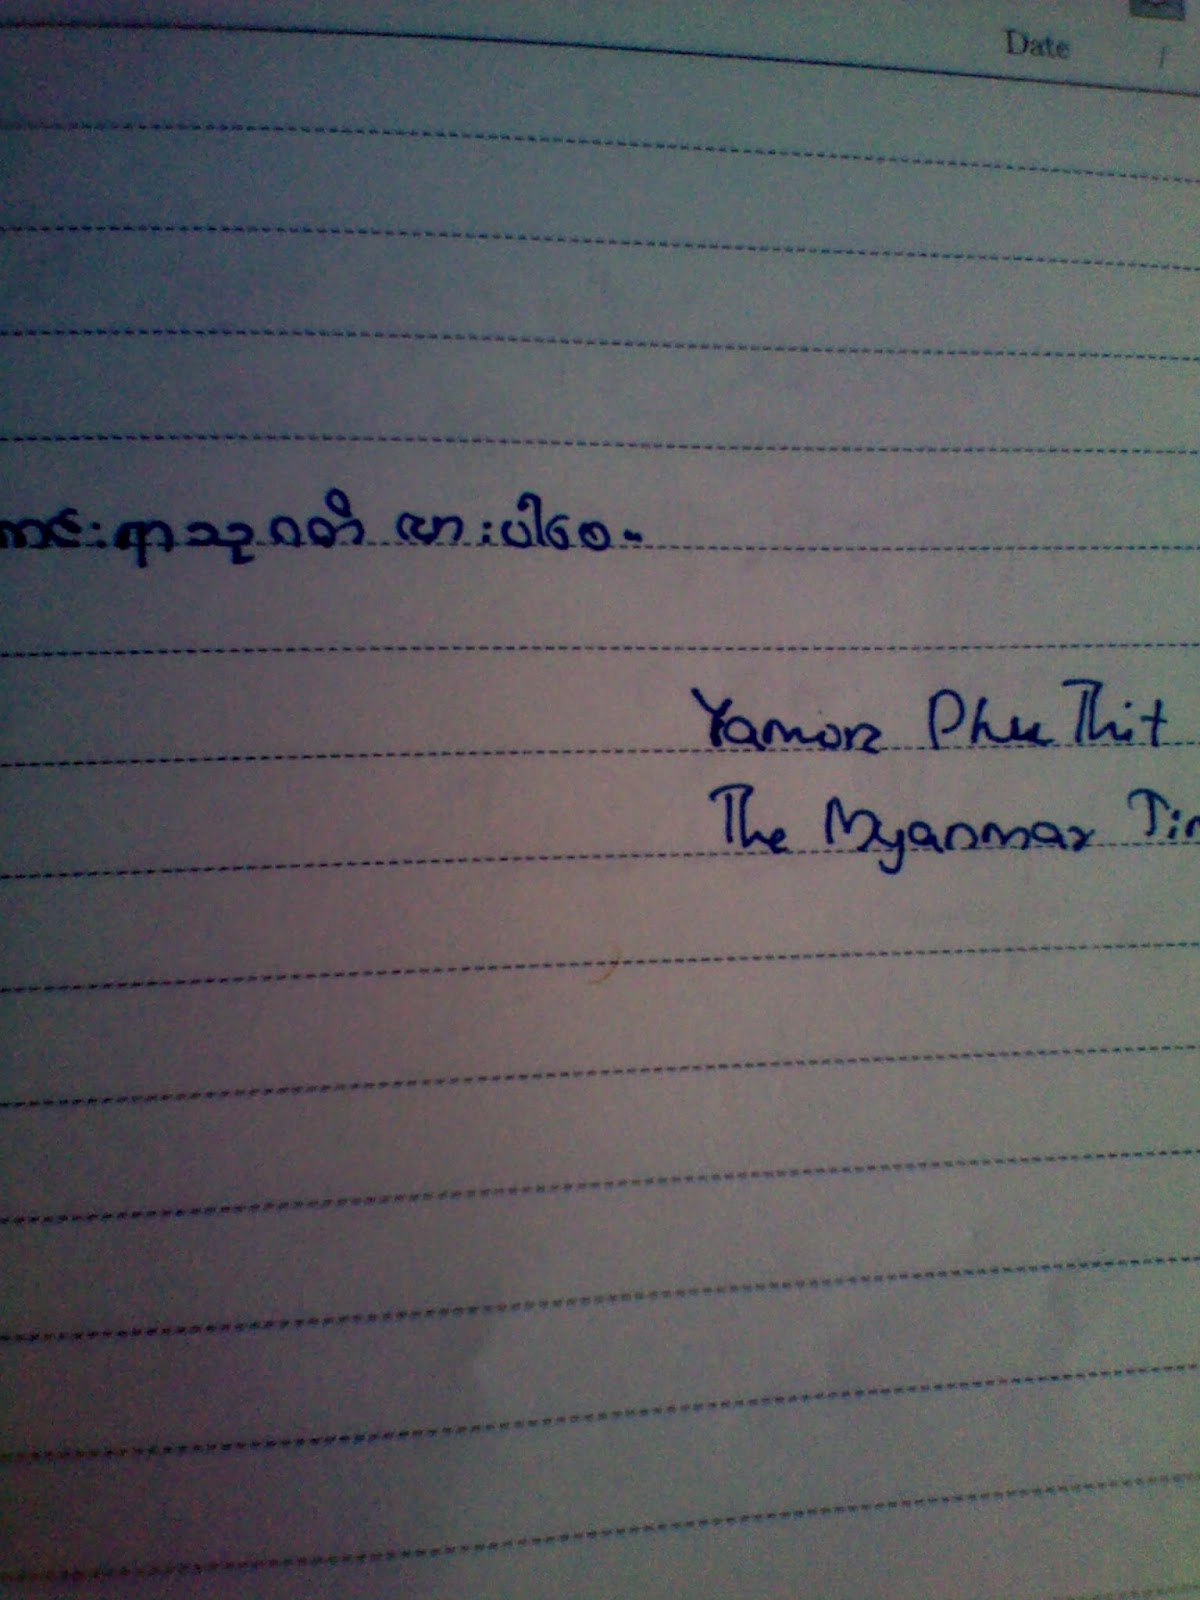 Date /
ကောင်းရာသုဂတိ လားပါစေ။
Yamon Phu Thit
The Myanmar Tim